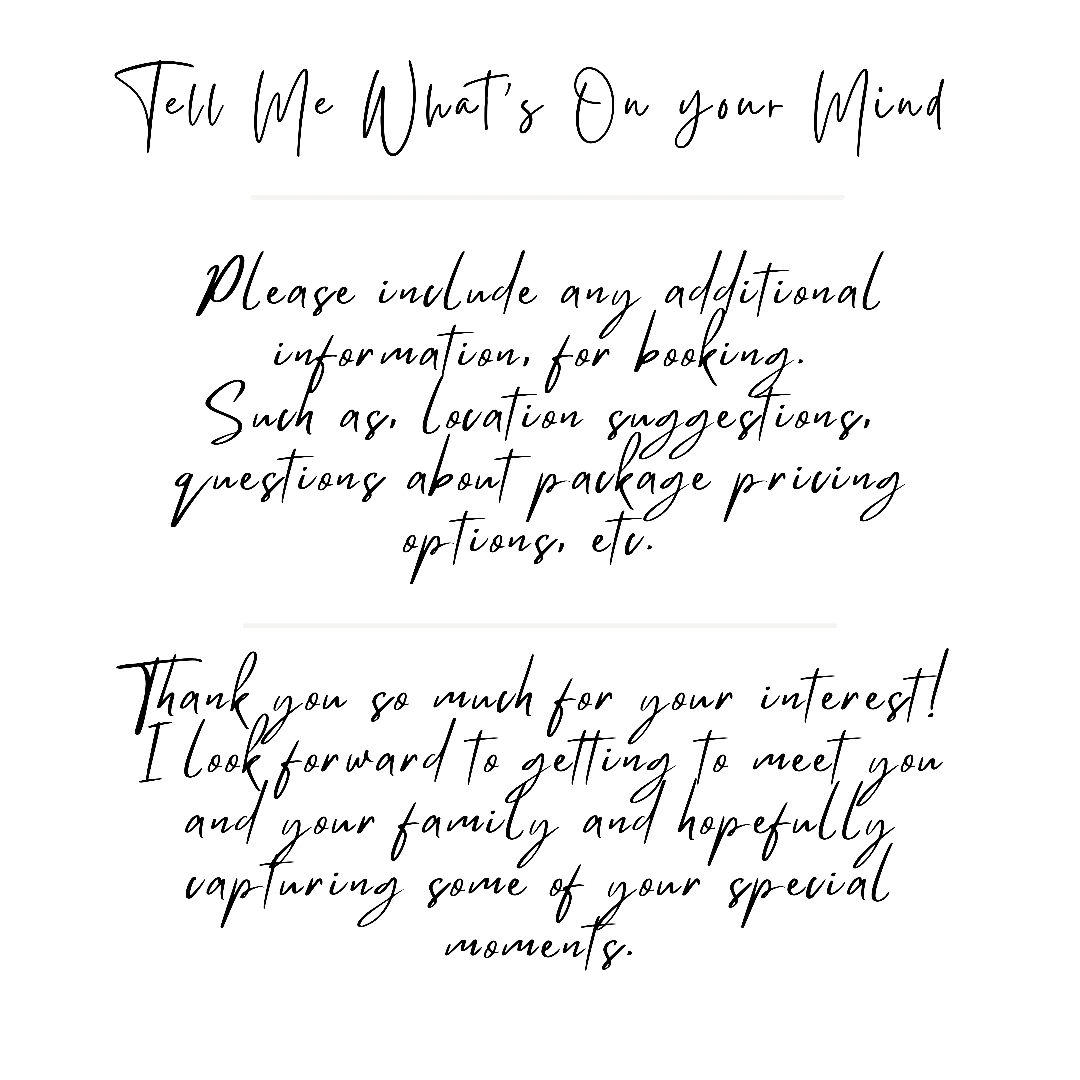 Tell Me What's On your Mind
Please include any additional
information, for booking.
Such as, location suggestions,
questions about package pricing
options, etc.
Thank you so much for your interest!
I look forward to getting to meet you
and your family and hopefully
capturing some of your special
moments.